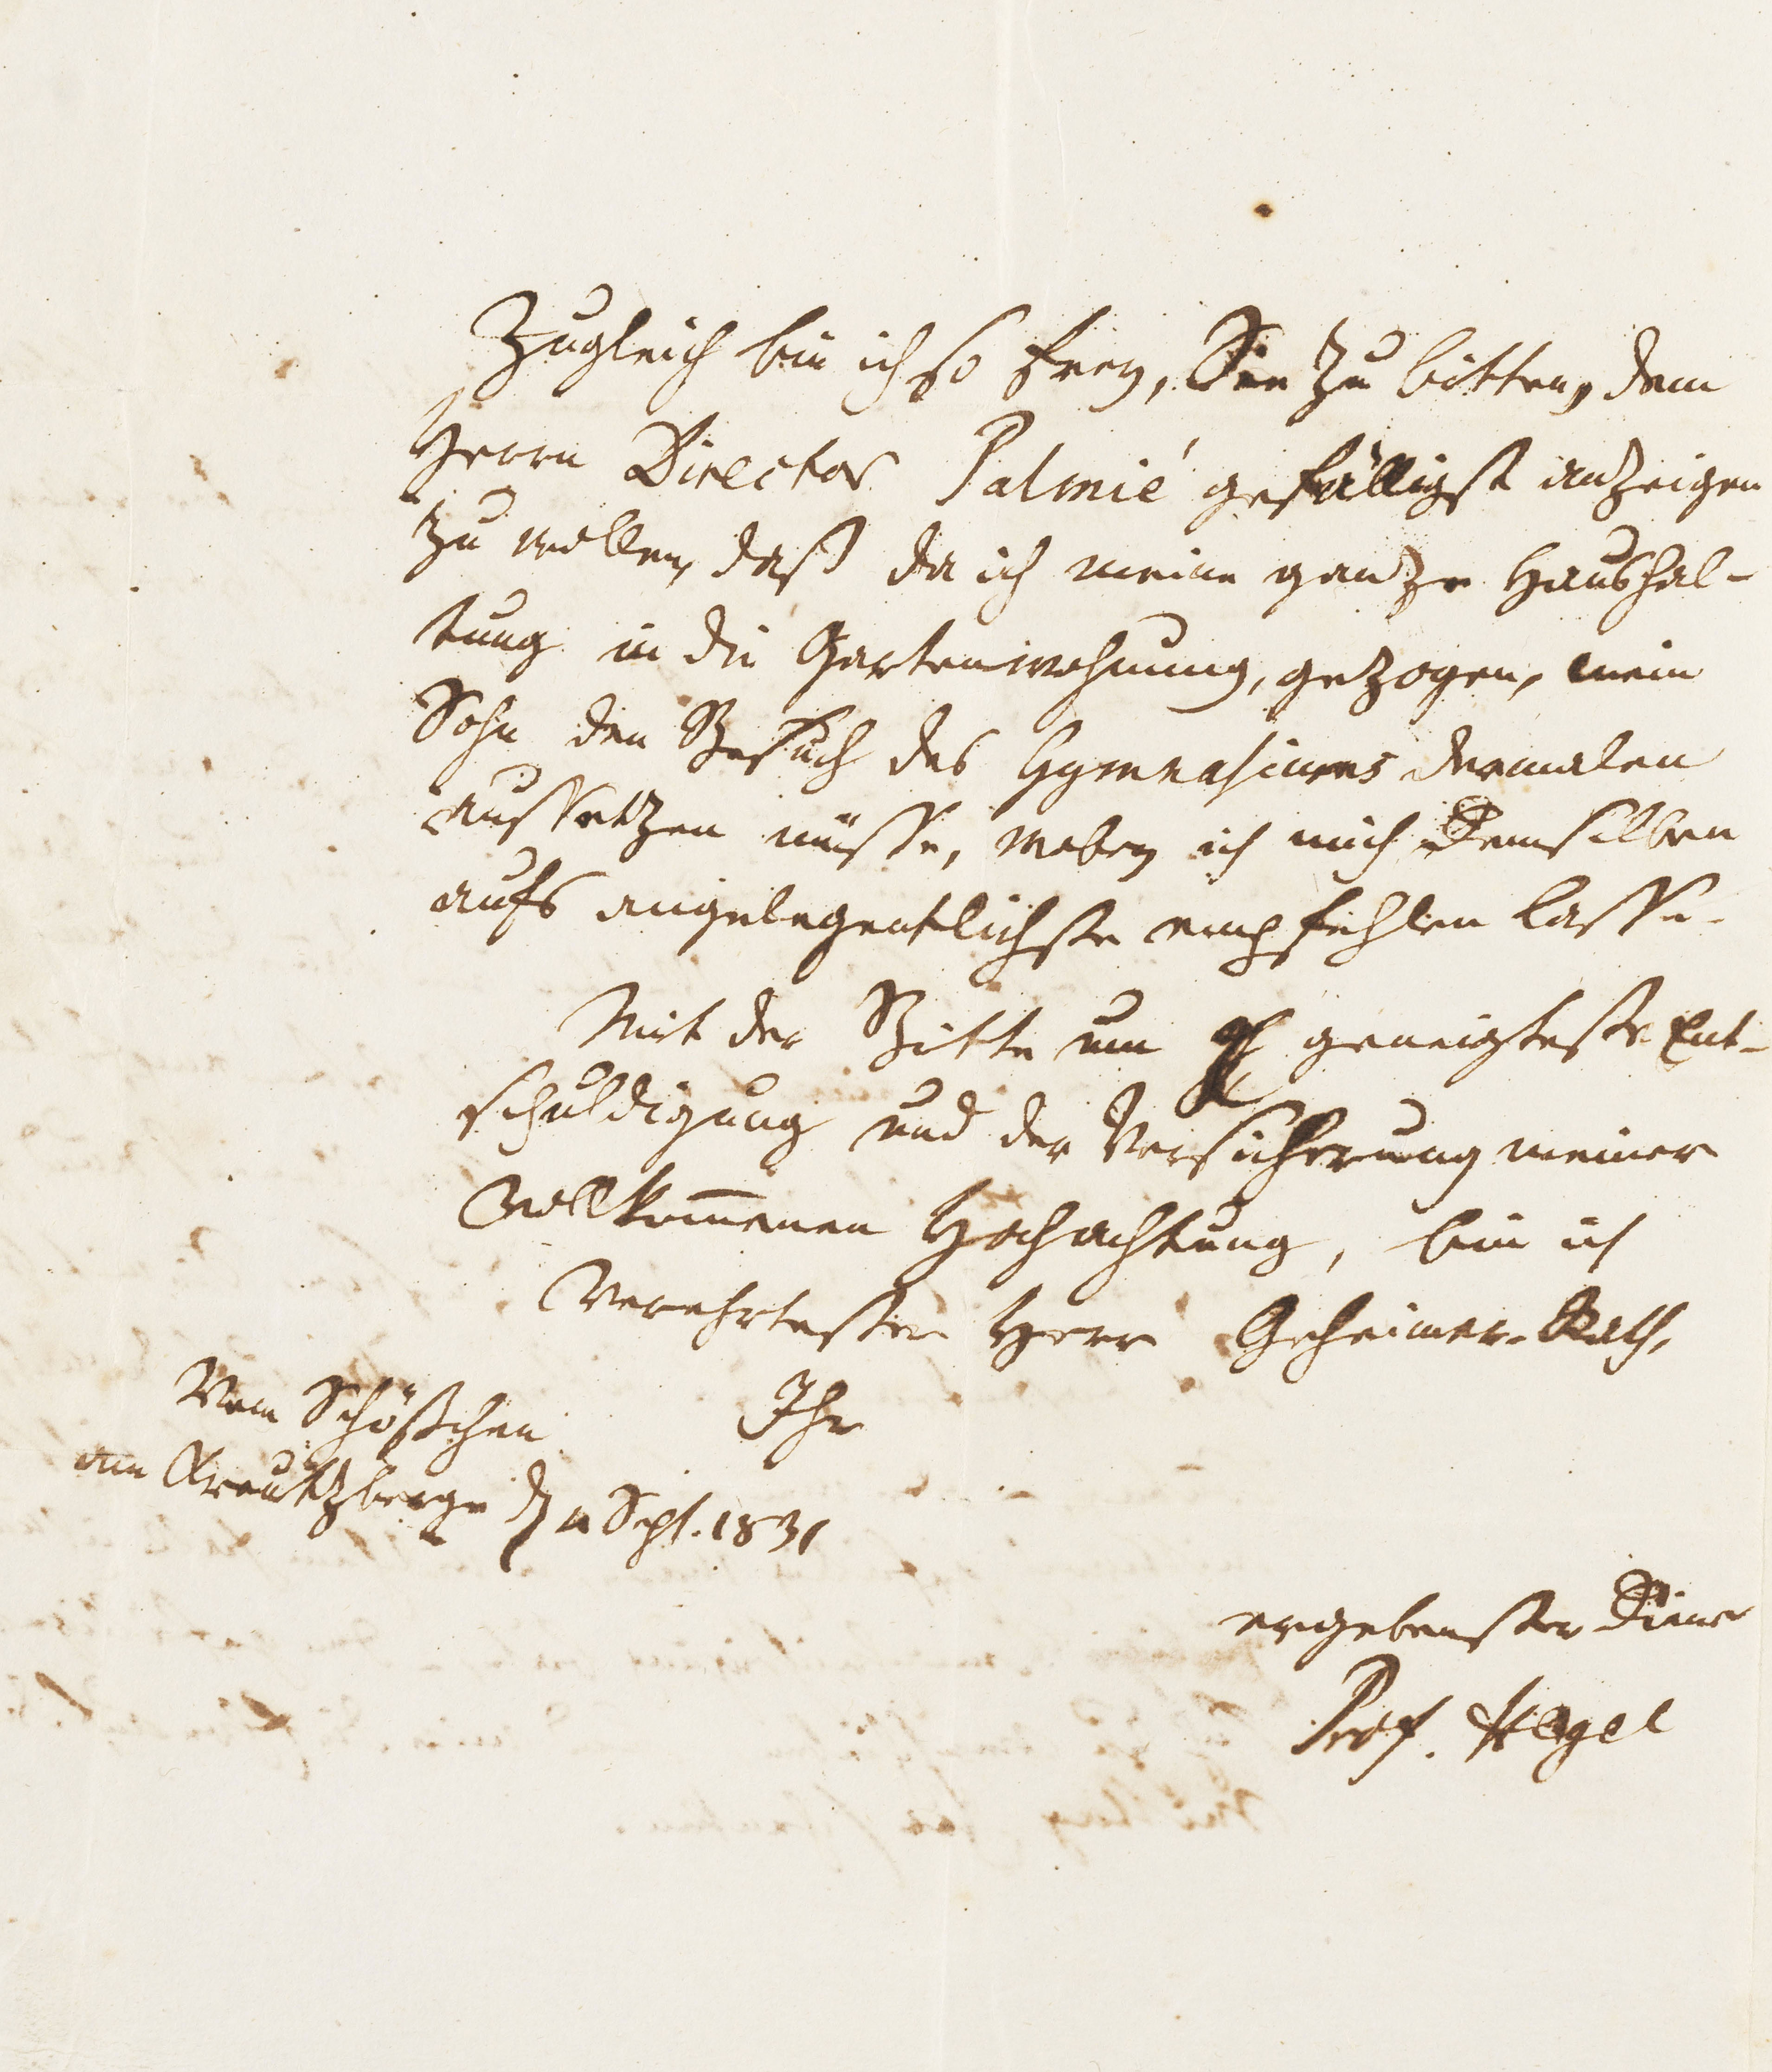 Zugleich bin ich so frey, Sie zu bitten, dem
Herrn Director Palmié gefälligst anzeigen
zu wollen, daß da ich meine ganze Haushal-
tung in die Gartenwohnung, gezogen, mein
Sohn den Besuch des Gymnasiums dermalen
aussetzen müsse, wobey ich mich Demselben
aufs angelegentlichste empfehlen lasse.
Mit der Bitte um geneigteste Ent-
schuldigung und der Versicherung meiner
vollkom̅enen Hochachtung, bin ich
Verehrtester Herr Geheimer-Rath,
Ihr
Vom Schößchen
am Kreutzberge d Sept. 1831
ergebenster Diener
Prof. Hegel